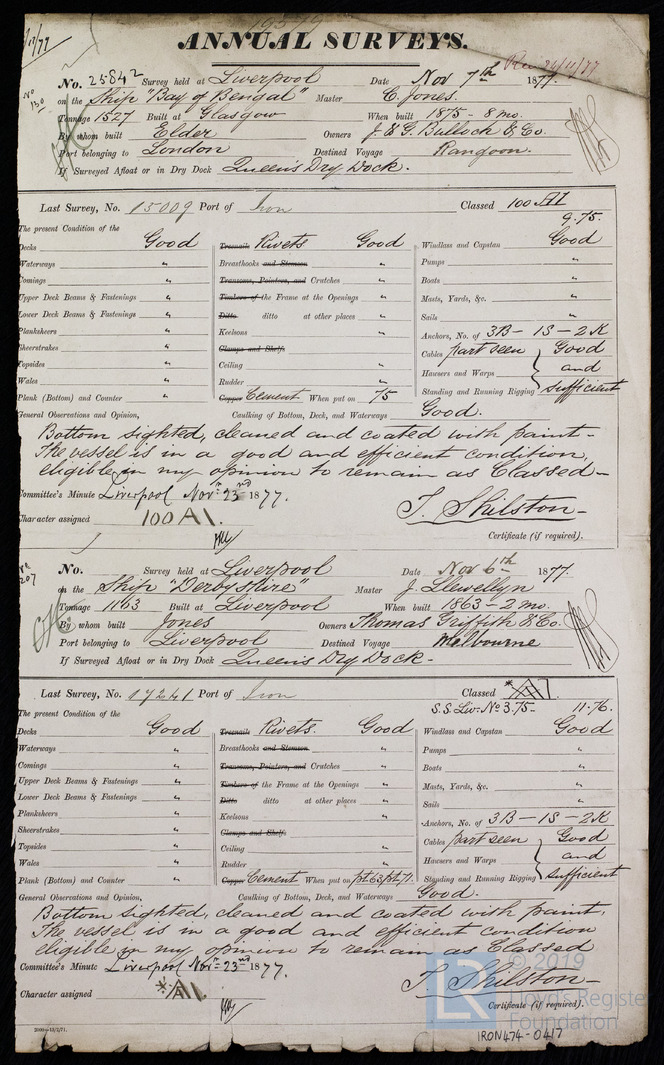 19579
ANNUAL SURVEYS.
Rec 24/11/77
No. 25842 Survey held at Liverpool Date Nov 7th 1877.
No 130
on the Ship "Bay of Bengal" Master C. Jones.
Tonnage 1527 Built at Glasgow When built 1875 - 8 mo.
By whom built Elder Owners J. & G. Bulloch & Co.
Port belonging to London Destined Voyage Rangoon.
If Surveyed Afloat or in Dry Dock Queen's Dry Dock.
Last Survey, No. 15009 Port of Iron Classed 100 A1
9.75.
The present Condition of the
Decks Good Treenails Rivets Good Windlass and Capstan Good
Waterways " Breasthooks and Stemson " Pumps "
Comings " Transoms, Pointers, and Crutches " Boats "
Upper Deck Beams & Fastenings " Timbers of the Frame at the Openings " Masts, Yards, &c. "
Lower Deck Beams & Fastenings " Ditto ditto at other places " Sails "
Planksheers " Keelsons " Anchors, No. of 3B - 1S - 2K
Sheerstrakes " Clamps and Shelfs Cables part seen Good
Topsides " Ceiling " Hawsers and Warps and
Wales " Rudder "
Plank (Bottom) and Counter " Copper Cement When put on 75 Standing and Running Rigging sufficient
General Observations and Opinion, Caulking of Bottom, Deck, and Waterways Good.
Bottom sighted, cleaned and coated with paint -
The vessel is in a good and efficient condition,
eligible in my opinion to remain as Classed -
Committee's Minute Liverpool Novr. 23rd 1877.
T. Shilston -
Character assigned 100 A1.
Certificate (if required).
No. Survey held at Liverpool Date Nov 6th 1877.
207
on the Ship "Derbyshire" Master J. Llewellyn
Tonnage 1163 Built at Liverpool When built 1863 - 2 mo.
By whom built Jones Owners Thomas Griffith & Co.
Port belonging to Liverpool Destined Voyage Melbourne
If Surveyed Afloat or in Dry Dock Queen's Dry Dock -
Last Survey, No. 17241 Port of Iron Classed
S.S. Liv. No 3.75 - 11.76.
The present Condition of the
Decks Good Treenails Rivets. Good Windlass and Capstan Good
Waterways " Breasthooks and Stemson " Pumps "
Comings " Transoms, Pointers, and Crutches " Boats "
Upper Deck Beams & Fastenings " Timbers of the Frame at the Openings " Masts, Yards, &c. "
Lower Deck Beams & Fastenings " Ditto ditto at other places " Sails "
Planksheers " Keelsons " Anchors, No. of 3B - 1S - 2K
Sheerstrakes " Clamps and Shelfs Cables part seen Good
Topsides " Ceiling " Hawsers and Warps and
Wales " Rudder "
Plank (Bottom) and Counter " Copper Cement When put on pt 63 pt 71. Standing and Running Rigging sufficient
General Observations and Opinion, Caulking of Bottom, Deck, and Waterways Good.
Bottom sighted, cleaned and coated with paint.
The vessel is in a good and efficient condition
eligible in my opinion to remain as Classed
Committee's Minute Liverpool Novr. 23rd 1877.
T. Shilston -
Character assigned *A1.
Certificate (if required).
LR © 2019
Lloyd's Register
Foundation
IRON474-0417